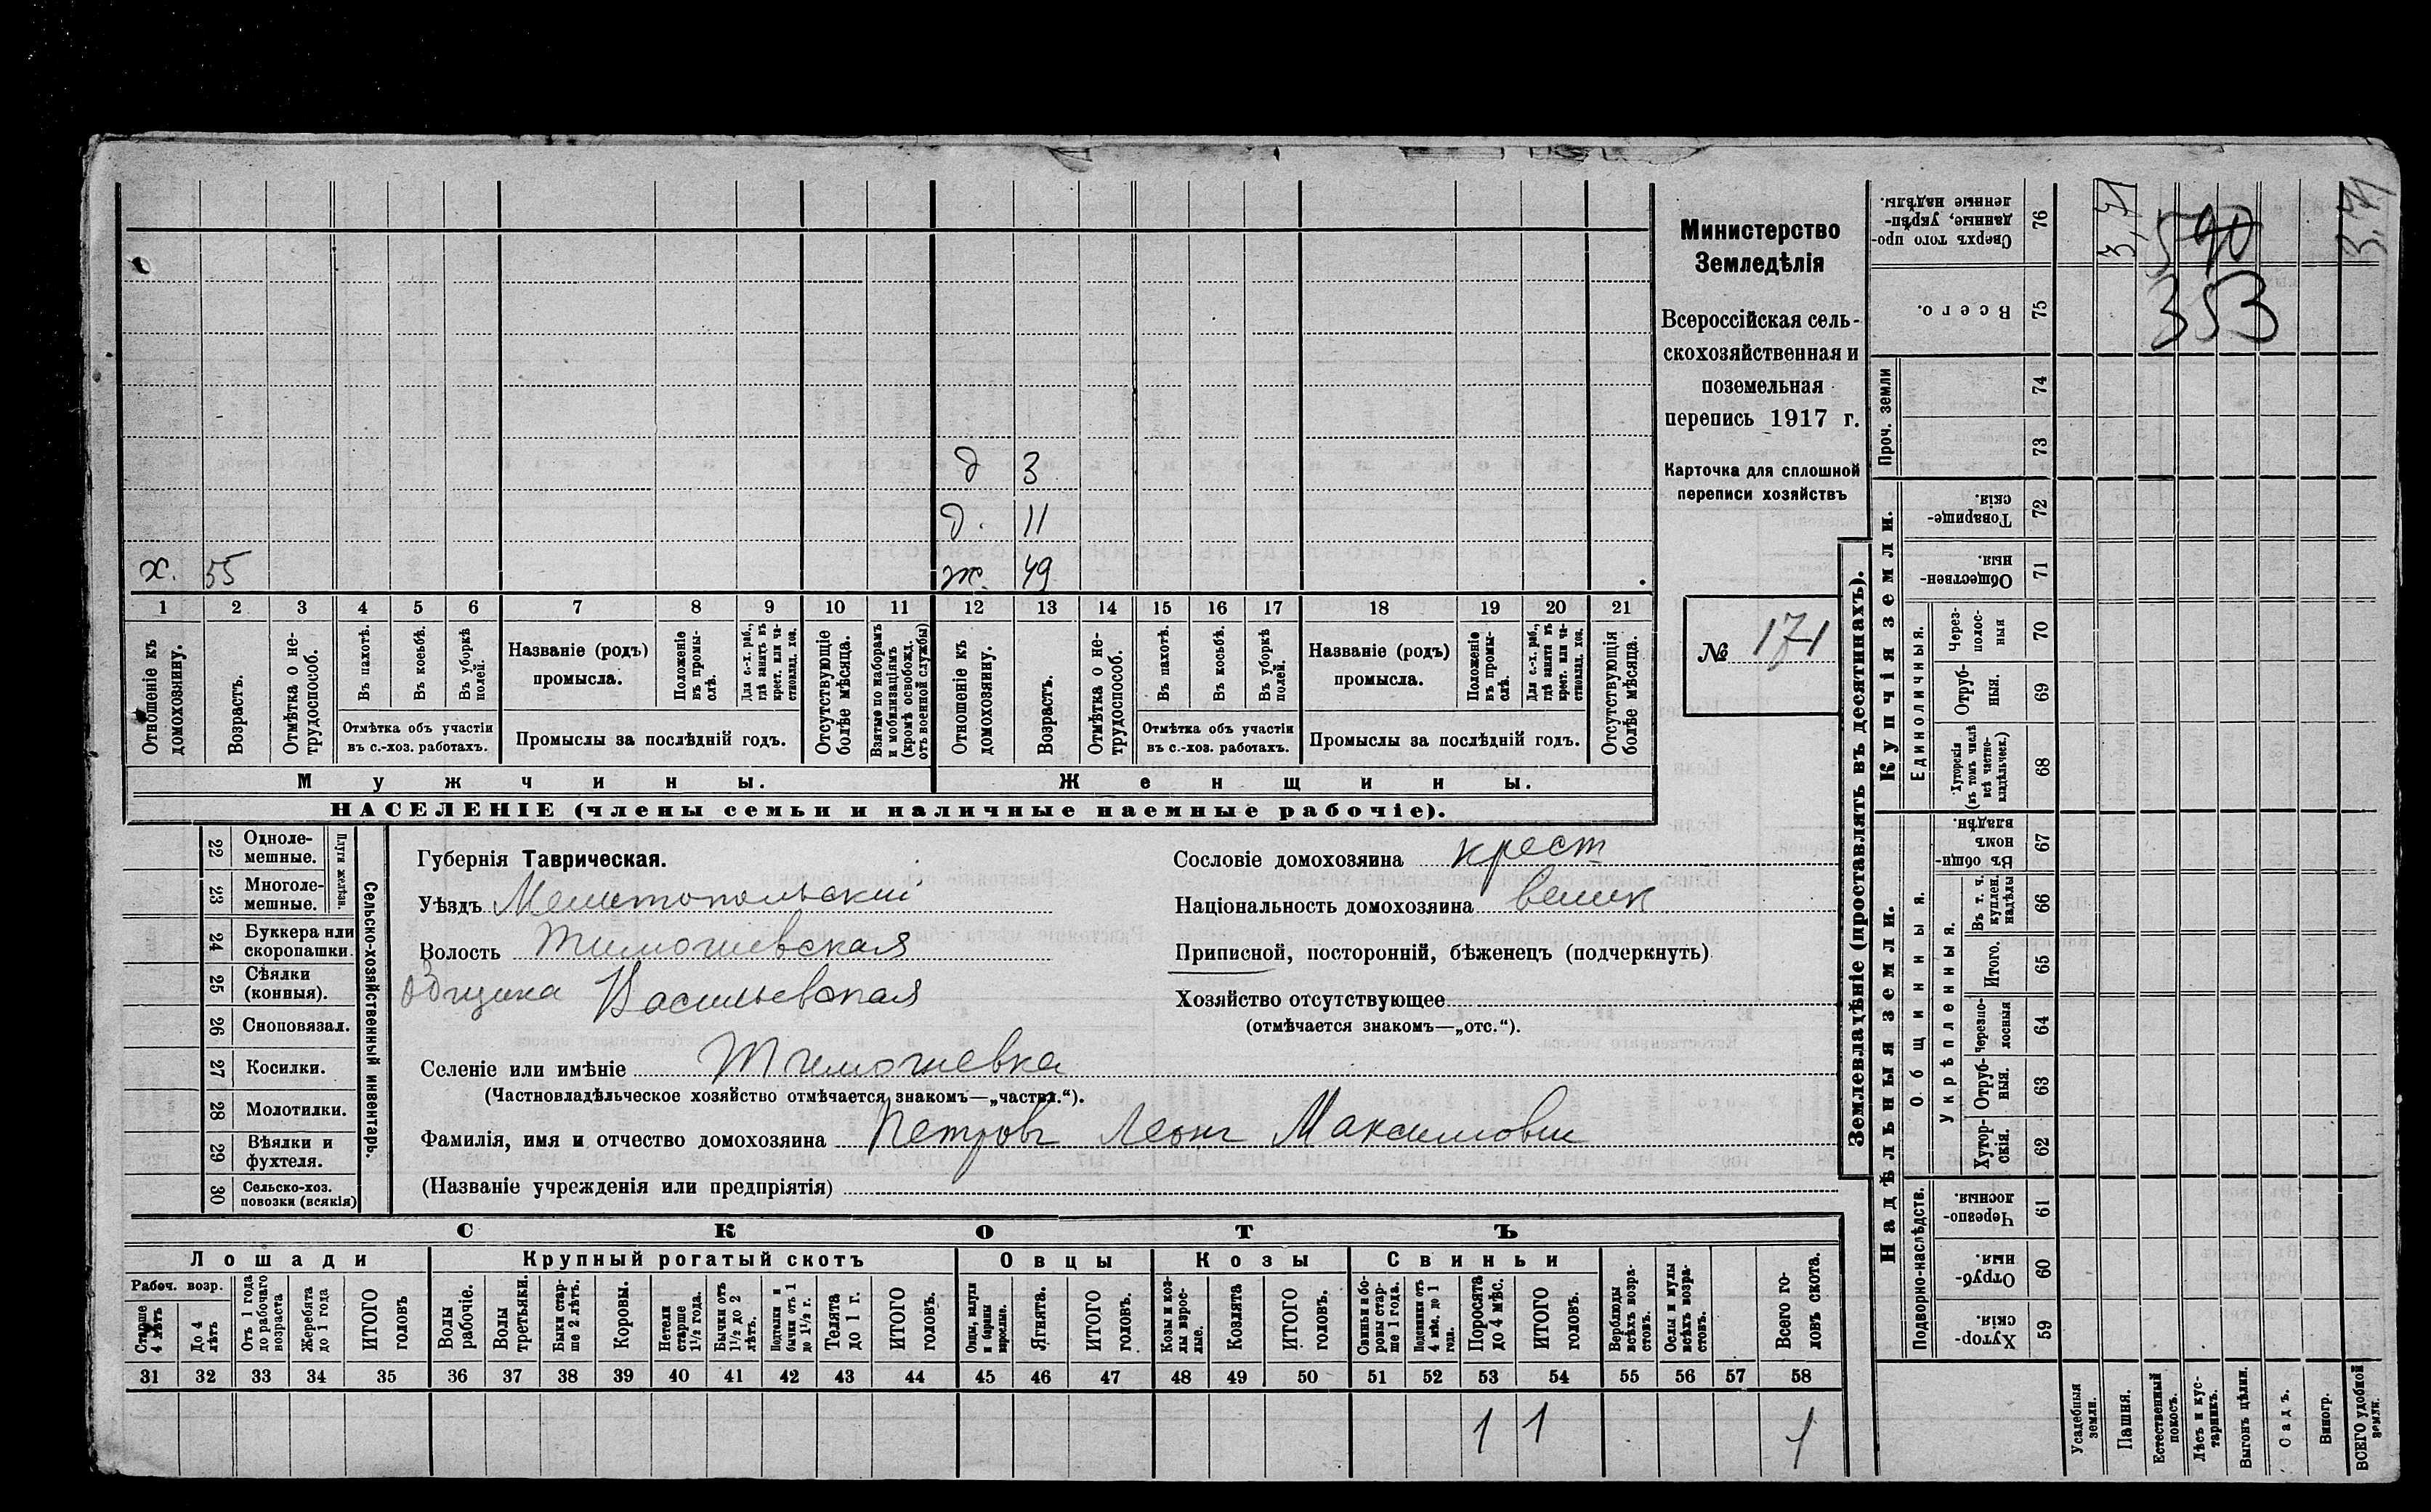 д 3
д. 11
х. 55 ж. 49
1 2 3 4 5 6 7 8 9 10 11 12 13 14 15 16 17 18 19 20 21
Отношеніе къ домохозяину.
Возрастъ.
Отмѣтка о не-трудоспособ.
Въ пахотѣ.
Въ косьбѣ.
Въ уборкѣ полей.
Отмѣтка объ участіи
въ с.-хоз. работахъ.
Названіе (родъ)
промысла.
Положеніе въ промы-слѣ.
Для с.-х. раб., гдѣ занятъ въ крест. или ча-стновлад. хоз.
Промыслы за послѣдній годъ.
Отсутствующіе болѣе мѣсяца.
Взятые по наборамъ и мобилизаціямъ (кромѣ освобожд. отъ военной службы)
Отношеніе къ домохозяину.
Возрастъ.
Отмѣтка о не-трудоспособ.
Въ пахотѣ.
Въ косьбѣ.
Въ уборкѣ полей.
Отмѣтка объ участіи
въ с.-хоз. работахъ.
Названіе (родъ)
промысла.
Положеніе въ промы-слѣ.
Для с.-х. раб., гдѣ занята въ крест. или ча-стновлад. хоз.
Промыслы за послѣдній годъ.
Отсутствующія болѣе мѣсяца.
Мужчины.
Женщины.
НАСЕЛЕНІЕ (члены семьи и наличные наемные рабочіе).
Министерство
Земледѣлія
Всероссійская сель-
скохозяйственная и
поземельная
перепись 1917 г.
Карточка для сплошной
переписи хозяйствъ
№ 171
22 Одноле-
мешные.
23 Многоле-
мешные.
Плуги желѣзн.
24 Буккера или
скоропашки.
25 Сѣялки
(конныя).
26 Сноповязал.
27 Косилки.
28 Молотилки.
29 Вѣялки и
фухтеля.
30 Сельско-хоз.
повозки (всякія)
Сельско-хозяйственный инвентарь.
Губернія Таврическая.
Уѣздъ Мелитопольскій
Волость Тимошевская
Община Васильевская
Селеніе или имѣніе Тимошевка
(Частновладѣльческое хозяйство отмѣчается знакомъ—„частвл.“).
Фамилія, имя и отчество домохозяина Петровъ Леонъ Максимови
(Названіе учрежденія или предпріятія)
Сословіе домохозяина крест
Національность домохозяина велик
Приписной, посторонній, бѣженецъ (подчеркнуть)
Хозяйство отсутствующее
(отмѣчается знакомъ—„отс.“).
СКОТЪ
Лошади
Крупный рогатый скотъ
Овцы
Козы
Свиньи
Рабоч. возр.
Старше 4 лѣтъ
До 4 лѣтъ
Отъ 1 года до рабочаго возраста
Жеребята до 1 года
ИТОГО головъ
Волы рабочіе.
Волы третьяки.
Быки стар-ше 2 лѣтъ.
Коровы.
Нетели старше 1½ года.
Бычки отъ 1½ до 2 лѣтъ.
Подтелки и бычки отъ 1 до 1½ г.
Телята до 1 г.
ИТОГО головъ.
Овцы, валухи и бараны взрослые.
Ягнята.
ИТОГО головъ.
Козы и коз-лы взрос-лые.
Козлята
ИТОГО головъ.
Свиньи и бо-ровы стар-ше 1 года.
Подсвинки отъ 4 мѣс. до 1 года.
Поросята до 4 мѣс.
ИТОГО головъ.
Верблюды всѣхъ возра-стовъ.
Ослы и мулы всѣхъ возра-стовъ.
Всего го-ловъ скота.
31 32 33 34 35 36 37 38 39 40 41 42 43 44 45 46 47 48 49 50 51 52 53 54 55 56 57 58
1 1 1
Землевладѣніе (проставлять въ десятинахъ).
Сверхъ того про-данные, укрѣп-ленные надѣлы. 76
Всего. 75
Проч. земли
74
73
Купчія земли.
Товарище-скія. 72
Обществен-ныя. 71
Единоличныя.
Через-полос-ныя 70
Отруб-ныя. 69
Хуторскія (въ томъ числѣ всѣ частно-владѣльческ.) 68
Надѣльныя земли.
Общинныя.
Въ общин-номъ владѣн. 67
Укрѣпленныя.
Въ т. ч. куплен. надѣлы 66
Итого. 65
Черезпо-лосныя 64
Отруб-ныя. 63
Хутор-скія. 62
Подворно-наслѣдств.
Черезпо-лосныя. 61
Отруб-ныя. 60
Хутор-скія. 59
Усадебныя земли.
Пашня.
Естественный покосъ.
Лѣсъ и кус-тарникъ.
Выгонъ цѣлин.
Садъ.
Виногр.
ВСЕГО удобной земли.
353